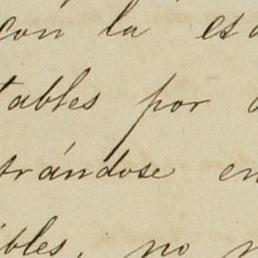 con la es
tables por
trándose en
ibles, no